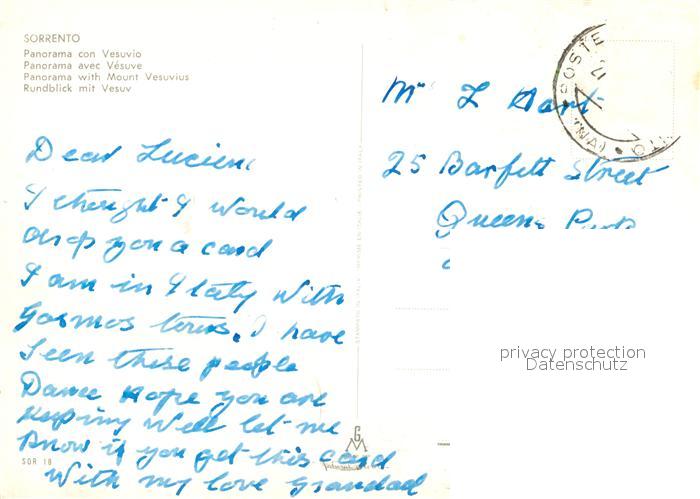 SORRENTO
Panorama con Vesuvio
Panorama avec Vésuve
Panorama with Mount Vesuvius
Rundblick mit Vesuv
POSTE
Mr L Hart
25 Barfett Street
Queens Park
Dear Lucien
I thought I would
drop you a card
I am in Italy with
Gosmos tours. I have
seen these people
Dance Hope you are
keeping well let me
know if you get this card
With my love Grandad
SOR 18
privacy protection
Datenschutz